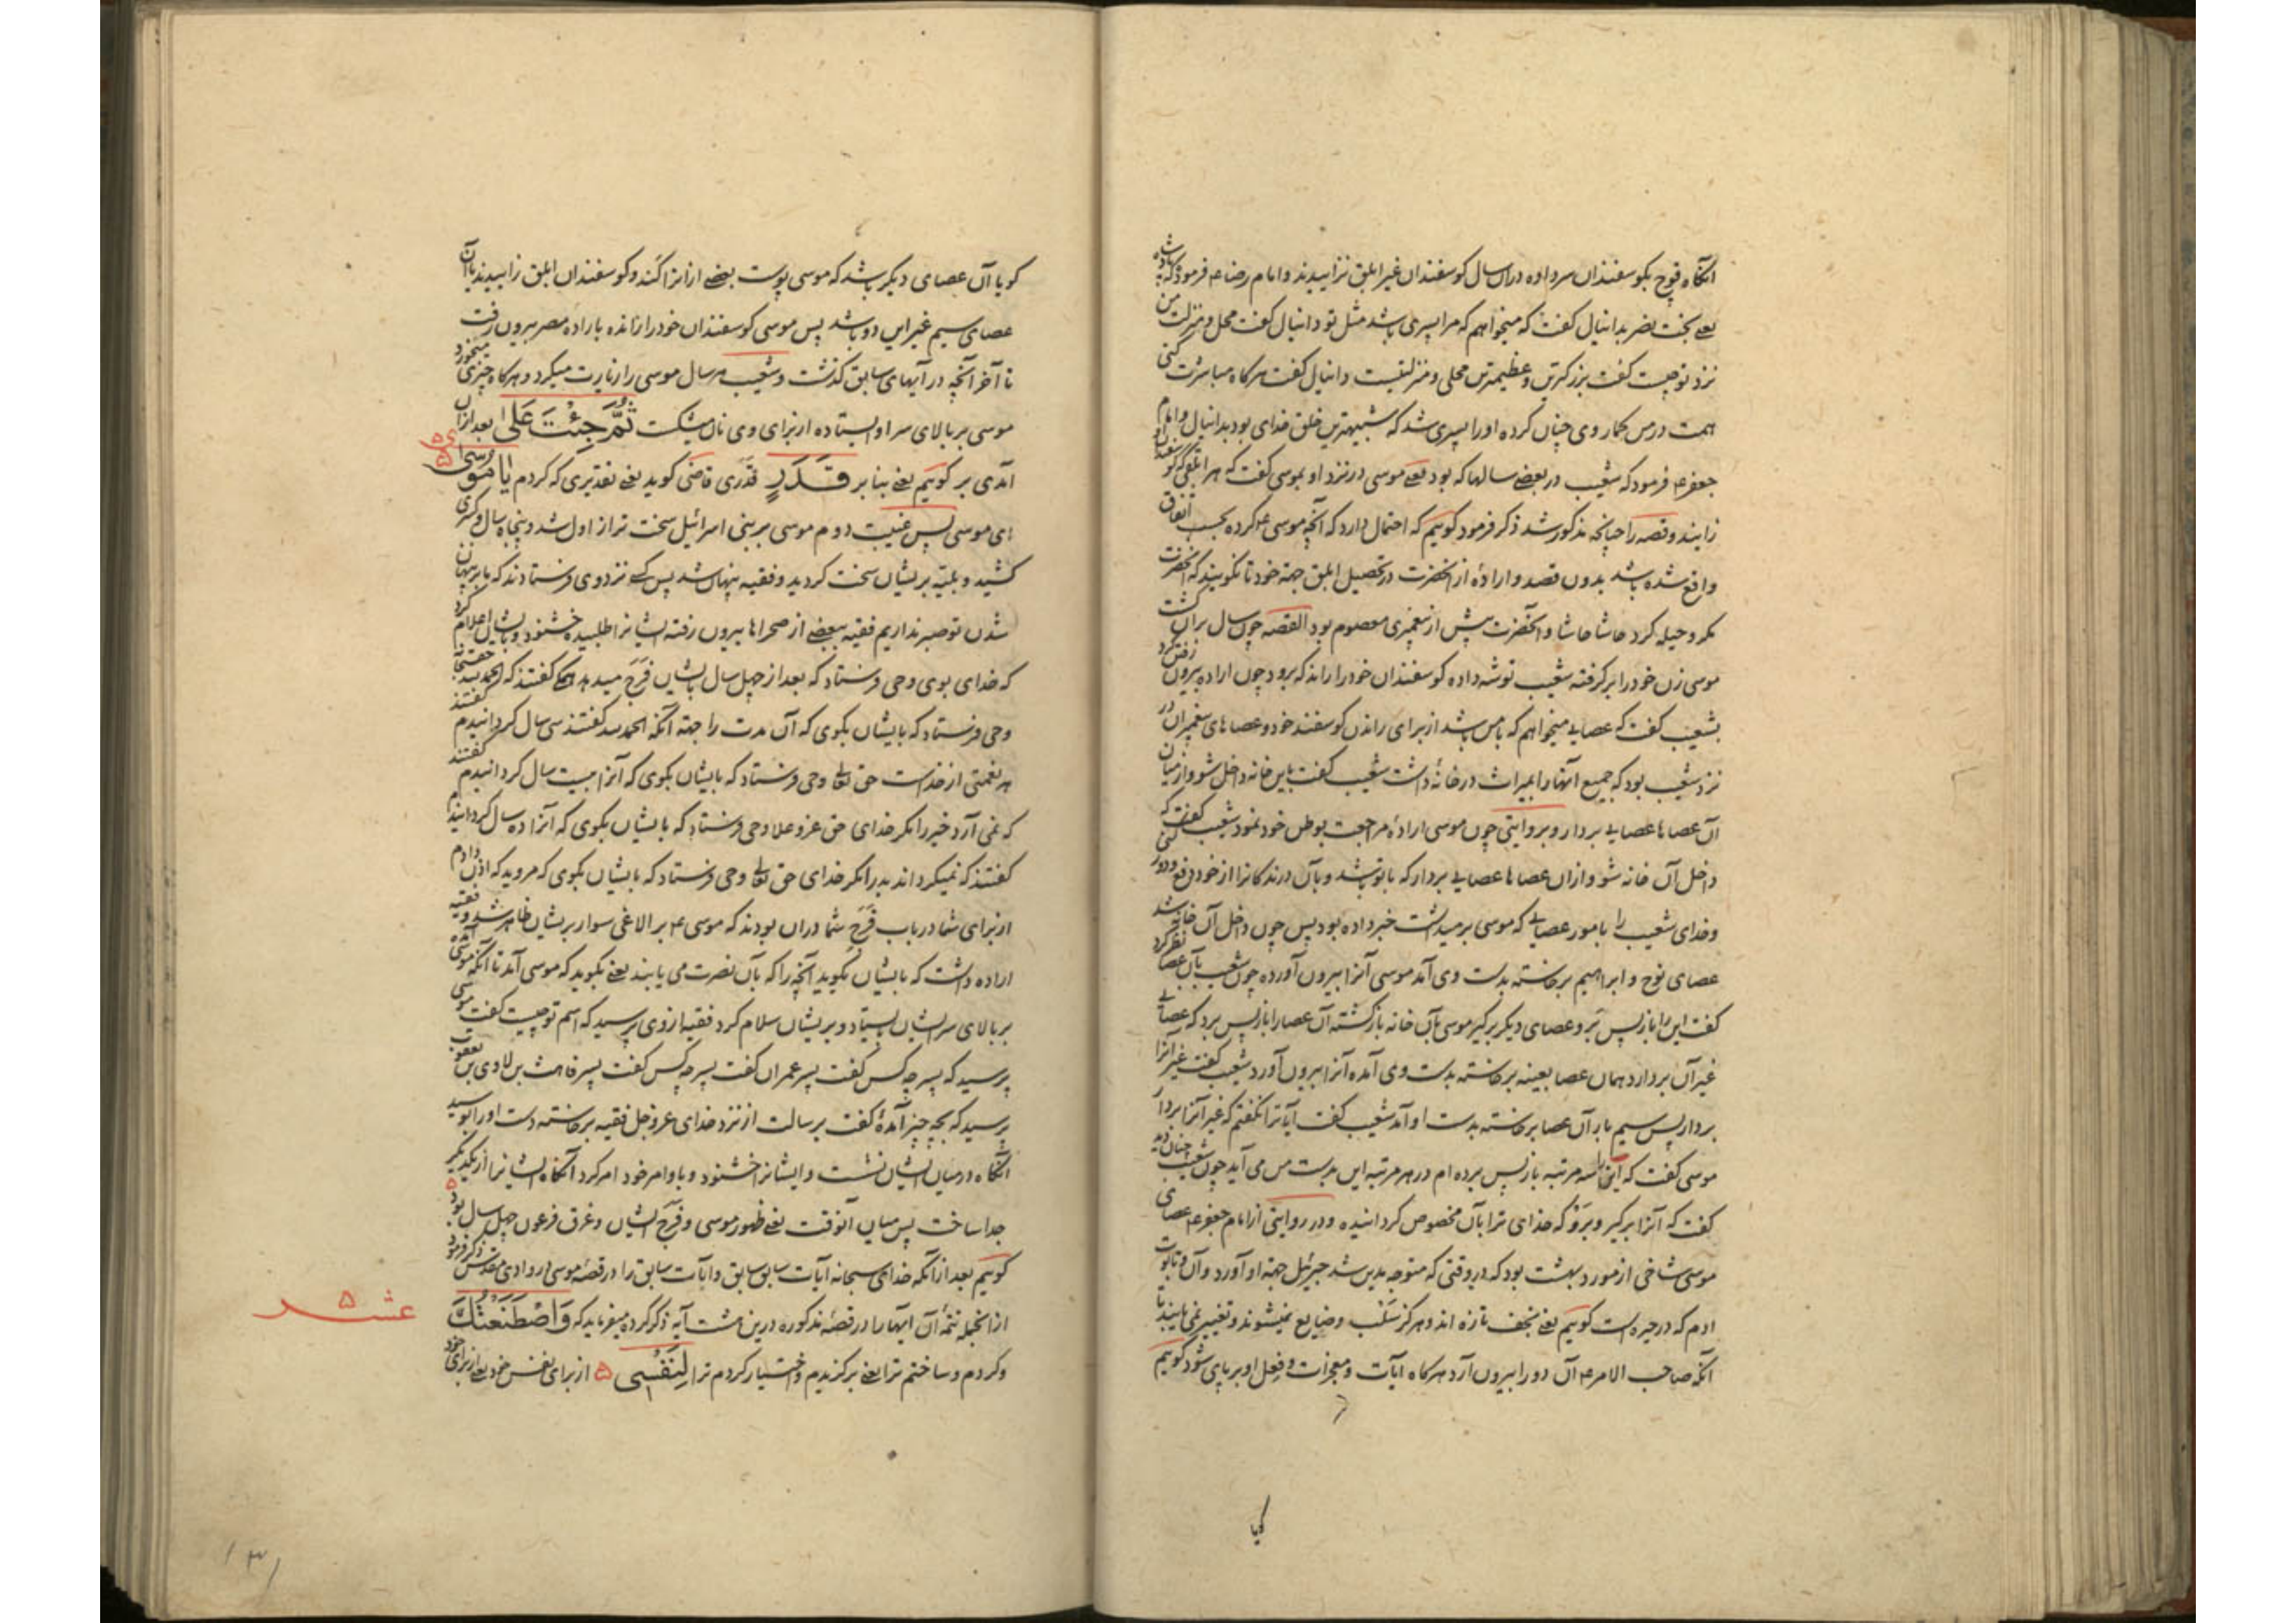 آنگاه قوچ بکوسفندان سر داده در آن سال کوسفندان غیر ابلق نزاییدند و امام رضا ۴ فرموده که
یعنی بخت نصر بدانیال کفت که میخواهم که مرا پسری باشد مثل تو دانیال کفت محل و منزلت من
نزد تو چیست کفت بزرکترین و عظیمترین محلی و منزلتیست دانیال کفت هرکاه مباشرت کنی
همت در من بکمار وی چنان کرده او را پسری شد که شبیهترین خلق خدای بود بدانیال و امام
جعفر ۴ فرمود که شعیب در بعضی سالها که بود یعنی موسی در نزد او بموسی کفت که هر ابلقی که کوسفندان
زایند و قصه را چنانچه مذکور شد ذکر فرمود کوییم که احتمال دارد که آنچه موسی ۴ کرده بحسب اتفاق
واقع شده باشد بدون قصد و ارادهٔ از آنحضرت در تحصیل ابلق جهة خود تا نکویند که آنحضرت
مکر و حیله کرد حاشا حاشا و آنحضرت پیش از پیغمبری معصوم بود القصه چون سال بر آن کشت
موسی زن خود را بر کرفته شعیب توشه داده کوسفندان خود را راند که برود چون اراده بیرون رفتن کرد
بشعیب کفت که عصایی میخواهم که با من باشد از برای راندن کوسفند خود و عصاهای پیغمبران در
نزد شعیب بود که جمیع آنها را بمیراث در خانهٔ داشت شعیب کفت باین خانه داخل شو و از میان
آن عصاها عصایی بردار و بروایتی چون موسی ارادهٔ مراجعت بوطن خود نمود شعیب کفت که
داخل آن خانه شو و از آن عصاها عصایی بردار که با تو باشد و بآن درندکانرا از خود دفع و دور کنی
و خدای شعیب را بامور عصایی که موسی بر میداشت خبر داده بود پس چون داخل آن خانه شد
عصای نوح و ابراهیم برخاسته بدست وی آمد موسی آنرا بیرون آورده چون شعیب بآن عصا نظر کرد
کفت این را باز پس بر و عصای دیکر برکیر موسی بآن خانه باز کشته آن عصا را باز پس برد که عصایی
غیر آن بردارد همان عصا بعینه برخاسته بدست وی آمده آنرا بیرون آورد شعیب کفت غیر آنرا
بردار پس سیم بار آن عصا برخاسته بدست او آمد شعیب کفت آیا ترا نکفتم که غیر آنرا بردار
موسی کفت که این را سه مرتبه باز پس برده ام در هر مرتبه این بدست من می آید چون شعیب چنان دید
کفت که آنرا برکیر و برو که خدای ترا بآن مخصوص کردانیده و در روایتی از امام جعفر ۴ عصای
موسی شاخی از مورد بهشت بود که در وقتی که متوجه مدین شد جبرئیل جهة او آورد و آن و تابوت
ادم که در حیره است کوییم یعنی نجف تازه اند و هرکز سلب و ضایع نمیشوند و تغییر نمی یابند تا
آنکه صاحب الامر ۴ آن دو را بیرون آرد هرکاه آیات و معجزات و فعل او بر پای شود کوییم
کویا
کویا آن عصای دیکر باشد که موسی پوست بعضی از آنرا کند و کوسفندان ابلق زاییدند یا آن
عصای سیم غیر این دو باشد پس موسی کوسفندان خود را رانده باراده مصر بیرون رفت
تا آخر آنچه در آیهای سابق کذشت و شعیب هر سال موسی را زیارت میکرد و هرکاه چیزی میخورد
موسی بر بالای سر او ایستاده از برای وی نان میشکست ثُمَّ جِئْتَ عَلیٰ بعد از آن
آمدی بر کوییم یعنی بنا بر قَدَرٍ قدری قاضی کوید یعنی تقدیری که کردم یا مُوسیٰ
ای موسی پس غیبت دوم موسی بر بنی اسرائیل سخت تر از اول شد و پنجاه سال و کسری
کشید و بلیّه بریشان سخت کردید و فقیه پنهان شد پس کسی نزد وی فرستادند که ما بر پنهان
شدن تو صبر نداریم فقیه ببعضی از صحراها بیرون رفته ایشانرا طلبیده خشنود و بایشان اعلام کرد
که خدای بوی وحی فرستاد که بعد از چهل سال بایشان فَرَج میدهد همکی کفتند که الحمد لله حقتعالی
وحی فرستاد که بایشان بکوی که آن مدت را جهة آنکه الحمد لله کفتند سی سال کردانیدم کفتند
هر نعمتی از خداست حق تعالی وحی فرستاد که بایشان بکوی که آنرا بیست سال کردانیدم کفتند
که نمی آرد خیر را مکر خدای حق عز و علا وحی فرستاد که بایشان بکوی که آنرا ده سال کردانیدم
کفتند که نمیکرداند بد را مکر خدای حق تعالی وحی فرستاد که بایشان بکوی که مروید که اذن دادم
از برای شما در باب فَرَج شما در آن بودند که موسی ۴ بر الاغی سوار بریشان ظاهر شد و فقیه
اراده داشت که بایشان بکوید آنچه را که بآن نصرت می یابند یعنی بکوید که موسی آمد تا آنکه موسی آمده
بر بالای سر ایشان بایستاد و بریشان سلام کرد فقیه از وی پرسید که اسم تو چیست کفت موسی
پرسید که پسر چه کس کفت پسر عمران کفت پسر چه کس کفت پسر قاهث بن لاوی بن یعقوب
پرسید که بچه چیز آمدهٔ کفت برسالت از نزد خدای عز و جل فقیه برخاسته دست او را بوسید
آنگاه در میان ایشان نشست و ایشانرا خشنود و باوامر خود امر کرد آنکاه ایشانرا از یکدیکر
جدا ساخت پس میان آنوقت یعنی ظهور موسی و فَرَج ایشان و غرق فرعون چهل سال بود
کوییم بعد از آنکه خدای سبحانه آیات سابق سابق و آیات سابق را در قصهٔ موسی در وادی مقدس ذکر فرمود
از آنجمله تتمهٔ آن آیها را در قصهٔ مذکوره درین هشت آیه ذکر کرده میفرماید که وَاصْطَنَعْتُكَ
و کردم و ساختم ترا یعنی برکزیدم و اختیار کردم ترا لِنَفْسِی از برای نفس خود یعنی از برای خود
عشر
۱۳۱